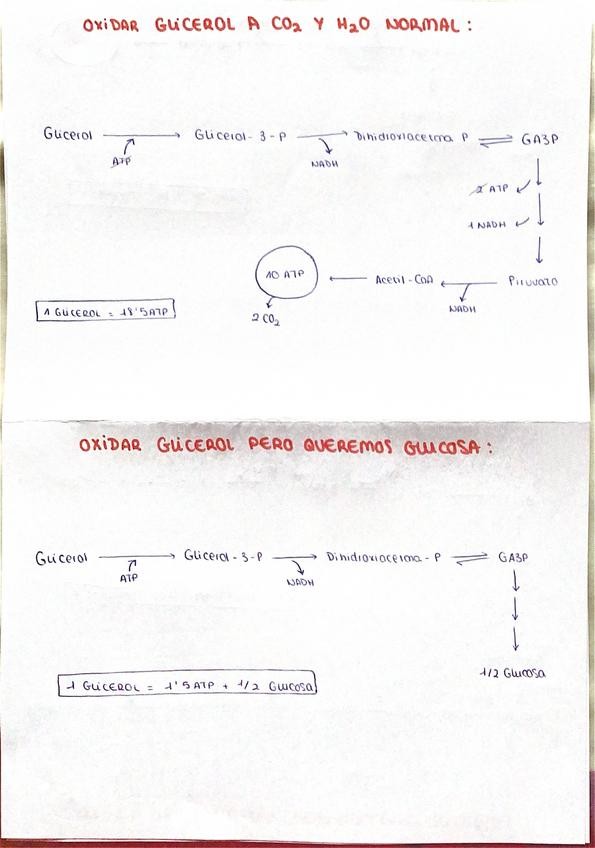 OXIDAR GLICEROL A CO2 Y H2O NORMAL:
Glicerol → Glicerol-3-P → Dihidroxiacetona P ⇌ GA3P
ATP NADH
2 ATP ✓
1 NADH ✓
10 ATP ← Acetil-CoA ← Piruvato
2 CO2 NADH
1 GLICEROL = 18'5 ATP
OXIDAR GLICEROL PERO QUEREMOS GLUCOSA:
Glicerol → Glicerol-3-P → Dihidroxiacetona-P ⇌ GA3P
ATP NADH
1/2 Glucosa
1 GLICEROL = 1'5 ATP + 1/2 GLUCOSA